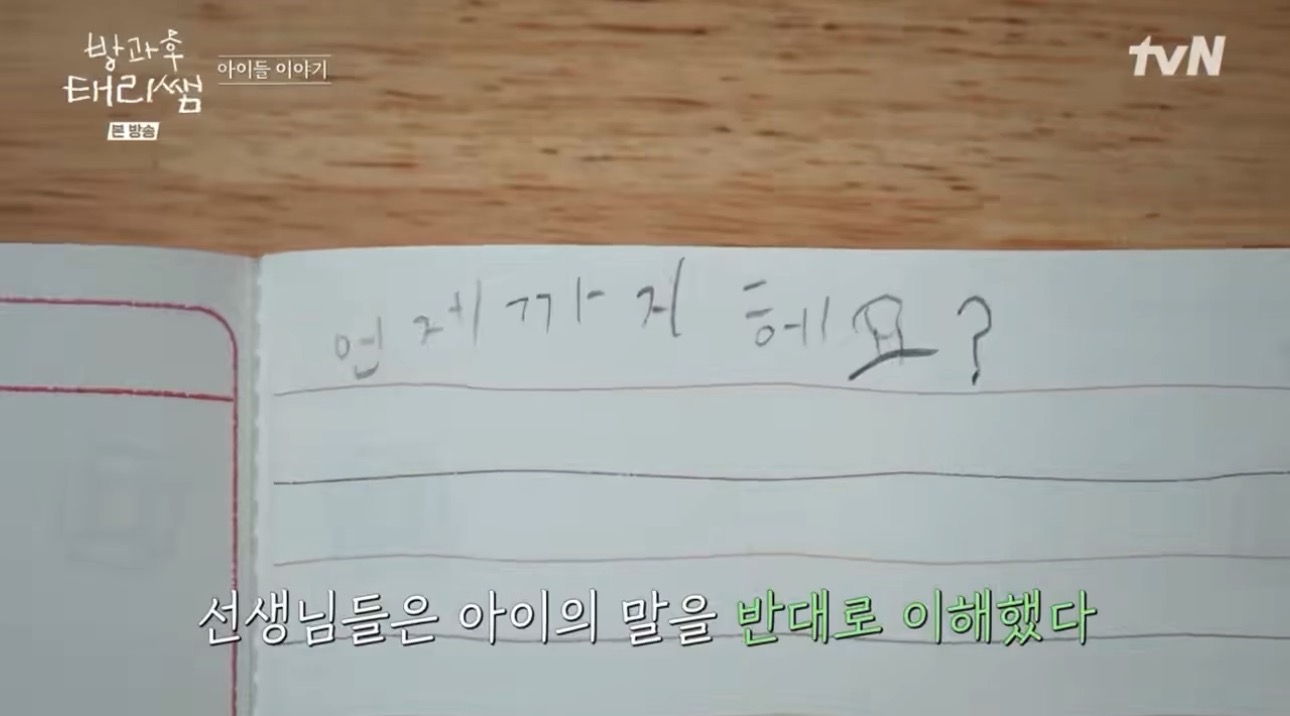 방과후 아이들 이야기 tvN
태리쌤
본 방송
언제까지 헤요?
선생님들은 아이의 말을 반대로 이해했다